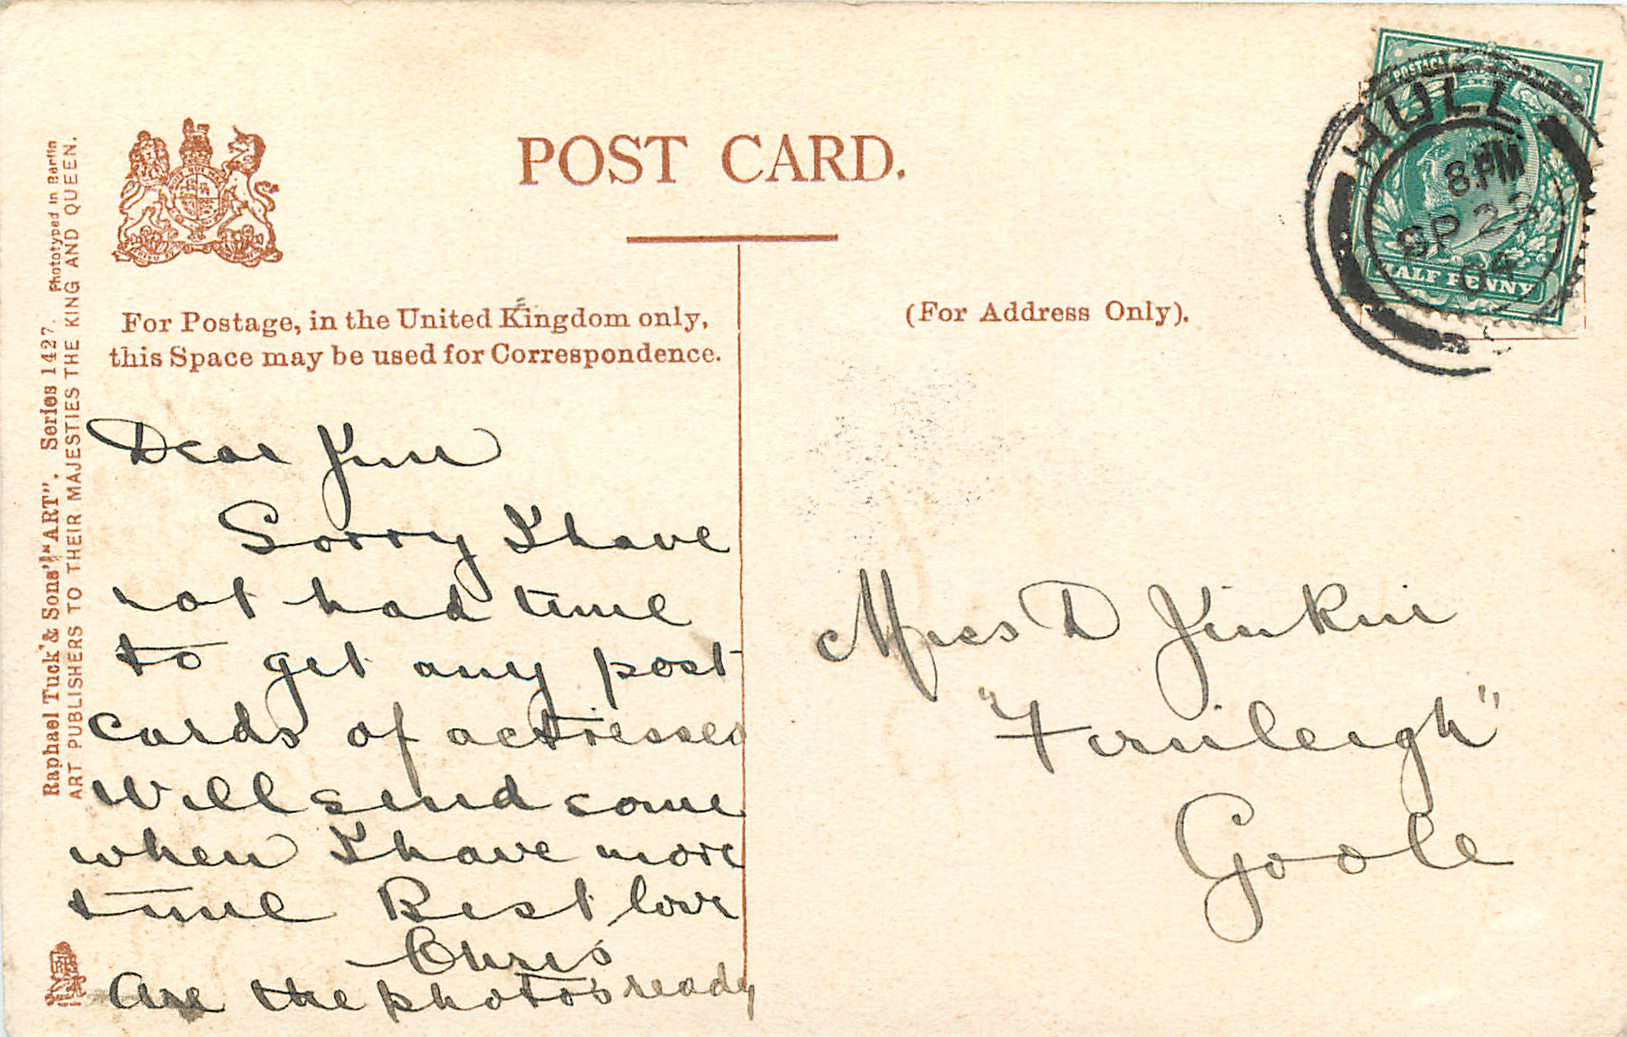 POST CARD.
For Postage, in the United Kingdom only,
this Space may be used for Correspondence.
(For Address Only).
Raphael Tuck & Sons' "ART". Series 1427. Phototyped in Berlin
ART PUBLISHERS TO THEIR MAJESTIES THE KING AND QUEEN.
POSTAGE
HALF PENNY
HULL
8.PM
SP 23
04
Dear
Sorry I have
not had time
to get any post
cards of actresses
will send some
when I have more
time Best love
Chris
are the photos ready
Miss D Jinkin
"Fernleigh"
Goole